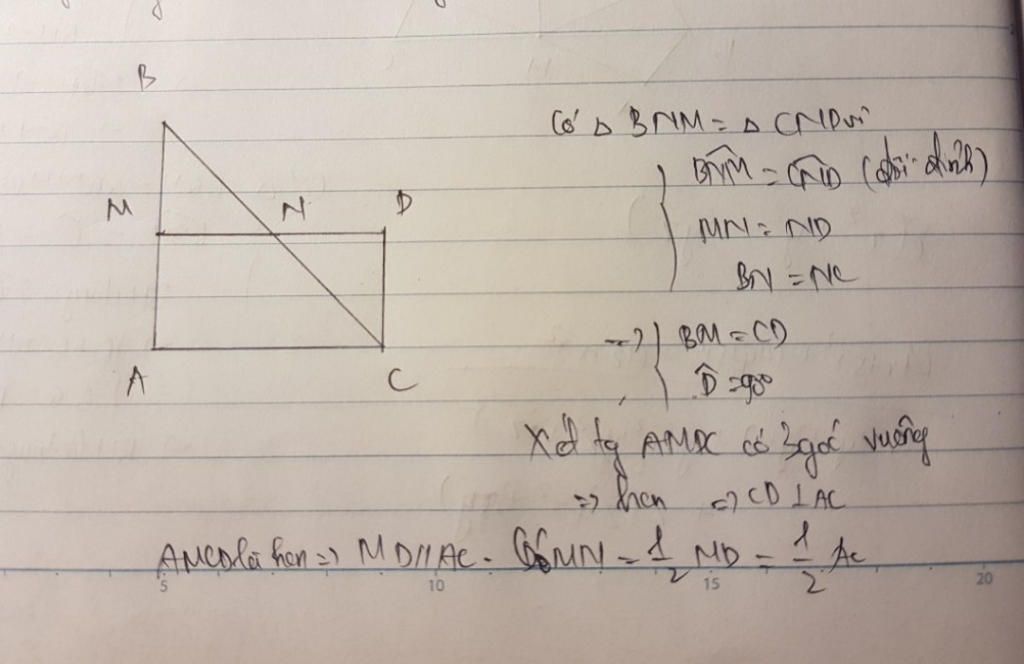 B
Có △ BNM = △ CND vì
BNM̂ = CND̂ (đối đỉnh)
M N D
MN = ND
BN = NC
=> BM = CD
D̂ = 90°
A C
Xét tg AMDC có 3 góc vuông
=> hcn => CD ⊥ AC
AMCD là hcn => MD // AC. Có MN = 1/2 MD = 1/2 AC
5 10 15 20